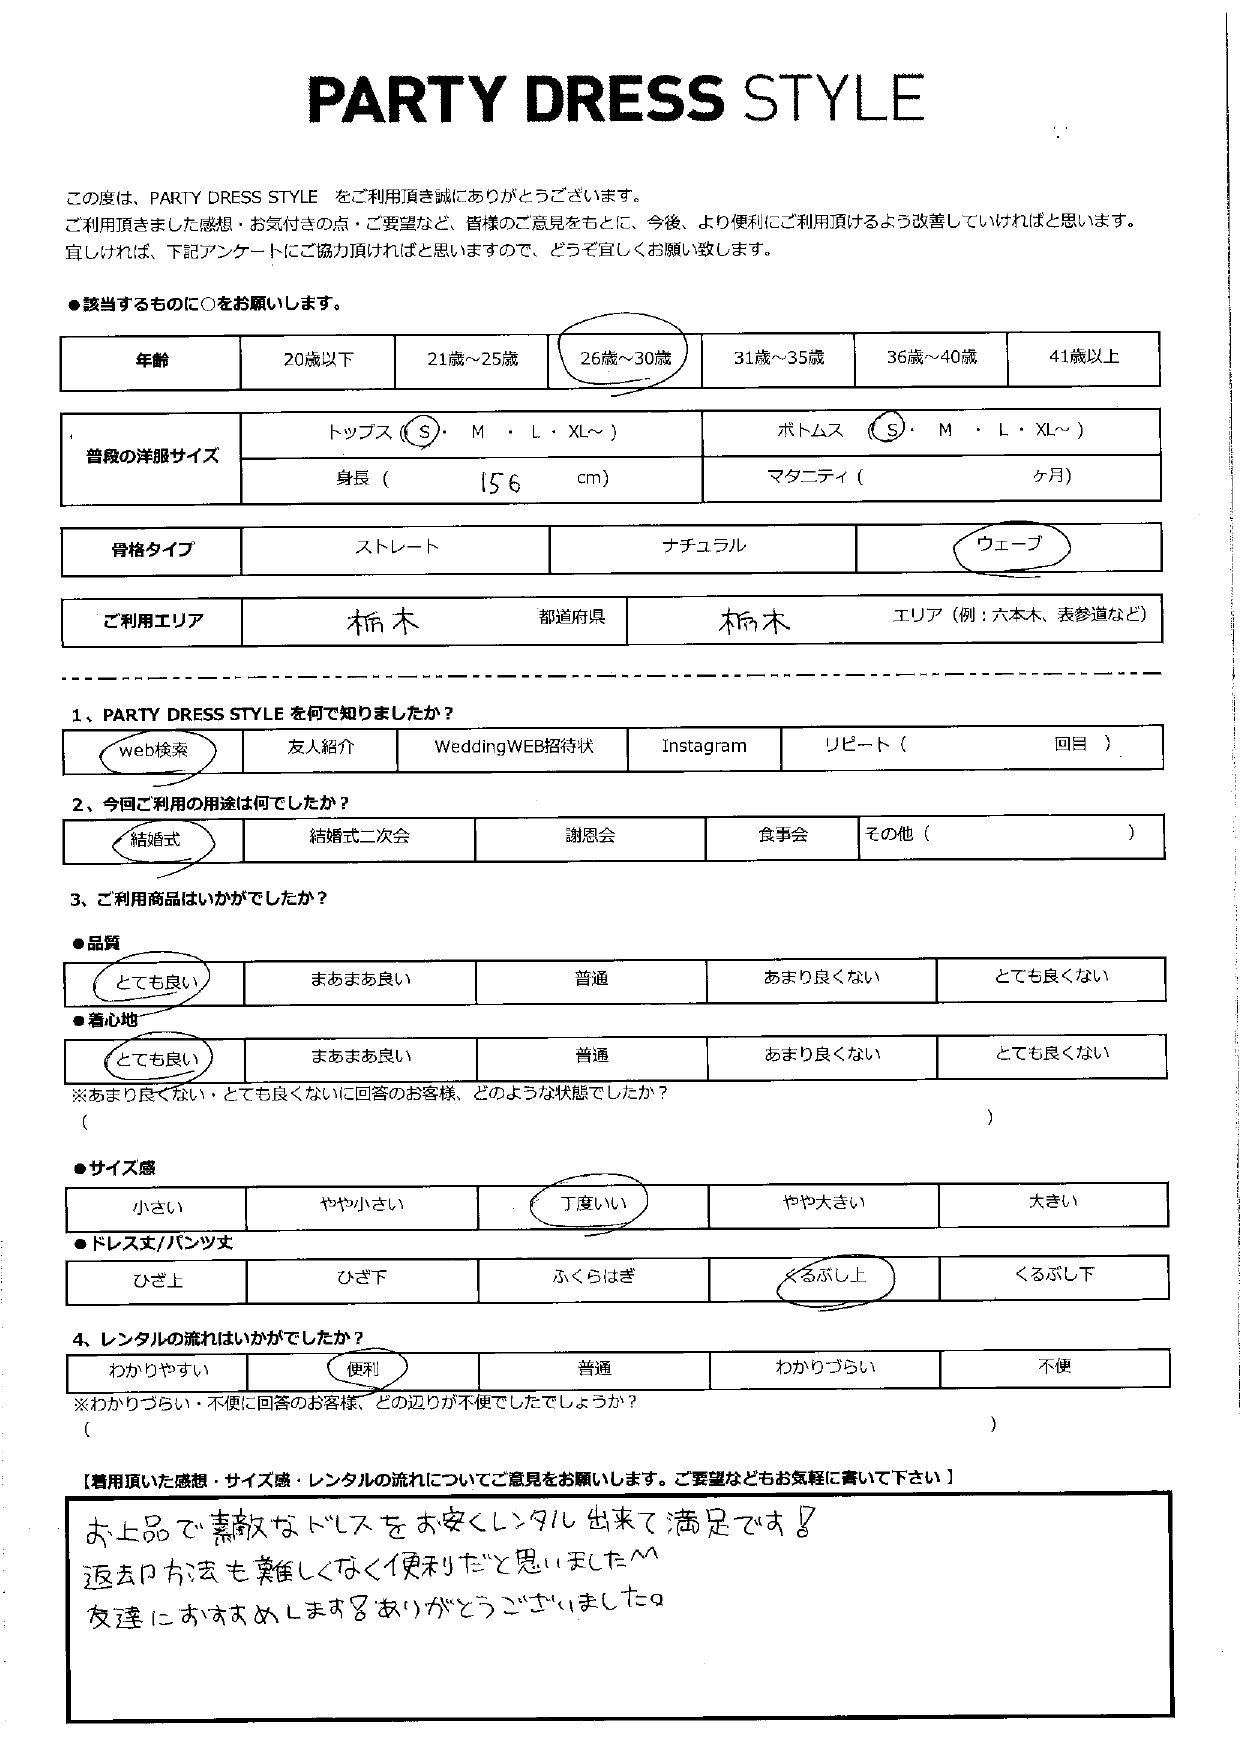 PARTY DRESS STYLE
この度は、PARTY DRESS STYLE をご利用頂き誠にありがとうございます。
ご利用頂きました感想・お気付きの点・ご要望など、皆様のご意見をもとに、今後、より便利にご利用頂けるよう改善していければと思います。
宜しければ、下記アンケートにご協力頂ければと思いますので、どうぞ宜しくお願い致します。
●該当するものに○をお願いします。
年齢 20歳以下 21歳～25歳 26歳～30歳 31歳～35歳 36歳～40歳 41歳以上
普段の洋服サイズ
トップス (S・ M ・ L・XL～ ) ボトムス (S・ M ・ L・XL～ )
身長 ( 156 cm) マタニティ ( ケ月)
骨格タイプ ストレート ナチュラル ウェーブ
ご利用エリア 栃木 都道府県 栃木 エリア（例：六本木、表参道など）
1、PARTY DRESS STYLE を何で知りましたか？
web検索 友人紹介 WeddingWEB招待状 Instagram リピート ( 回目 )
2、今回ご利用の用途は何でしたか？
結婚式 結婚式二次会 謝恩会 食事会 その他 ( )
3、ご利用商品はいかがでしたか？
●品質
とても良い まあまあ良い 普通 あまり良くない とても良くない
●着心地
とても良い まあまあ良い 普通 あまり良くない とても良くない
※あまり良くない・とても良くないに回答のお客様、どのような状態でしたか？
( )
●サイズ感
小さい やや小さい 丁度いい やや大きい 大きい
●ドレス丈/パンツ丈
ひざ上 ひざ下 ふくらはぎ くるぶし上 くるぶし下
4、レンタルの流れはいかがでしたか？
わかりやすい 便利 普通 わかりづらい 不便
※わかりづらい・不便に回答のお客様、どの辺りが不便でしたでしょうか？
( )
【着用頂いた感想・サイズ感・レンタルの流れについてご意見をお願いします。ご要望などもお気軽に書いて下さい】
お上品で素敵なドレスをお安くレンタル出来て満足です！
返却方法も難しくなく便利だと思いました^^
友達におすすめします！ありがとうございました。